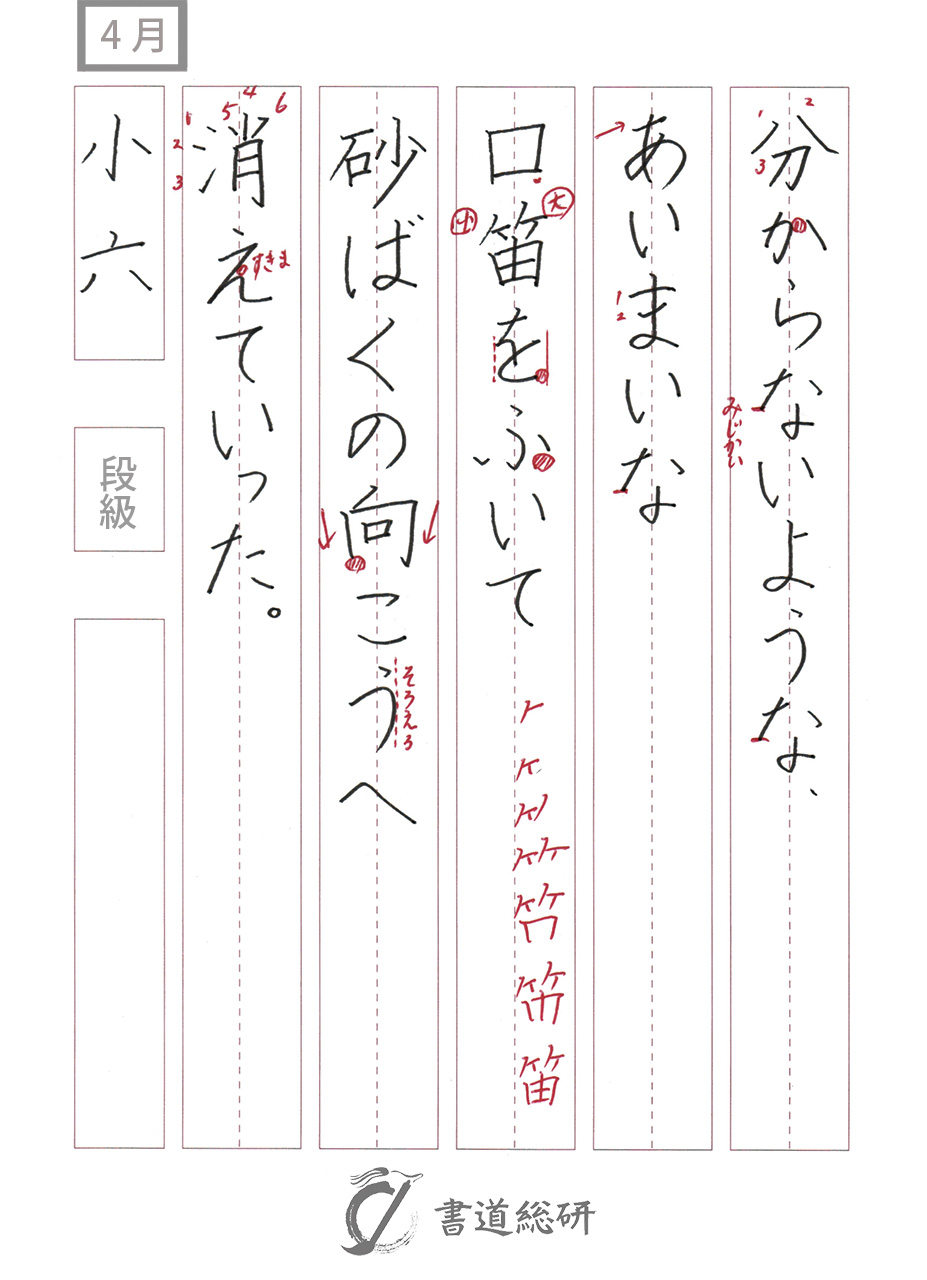 4月
分からないような、
あいまいな
口笛をふいて
砂ばくの向こうへ
消えていった。
小六
段級
1
2
3
みじかい
1
2
大
小
笛
そろえる
1
2
3
4
5
6
すきま
書道総研